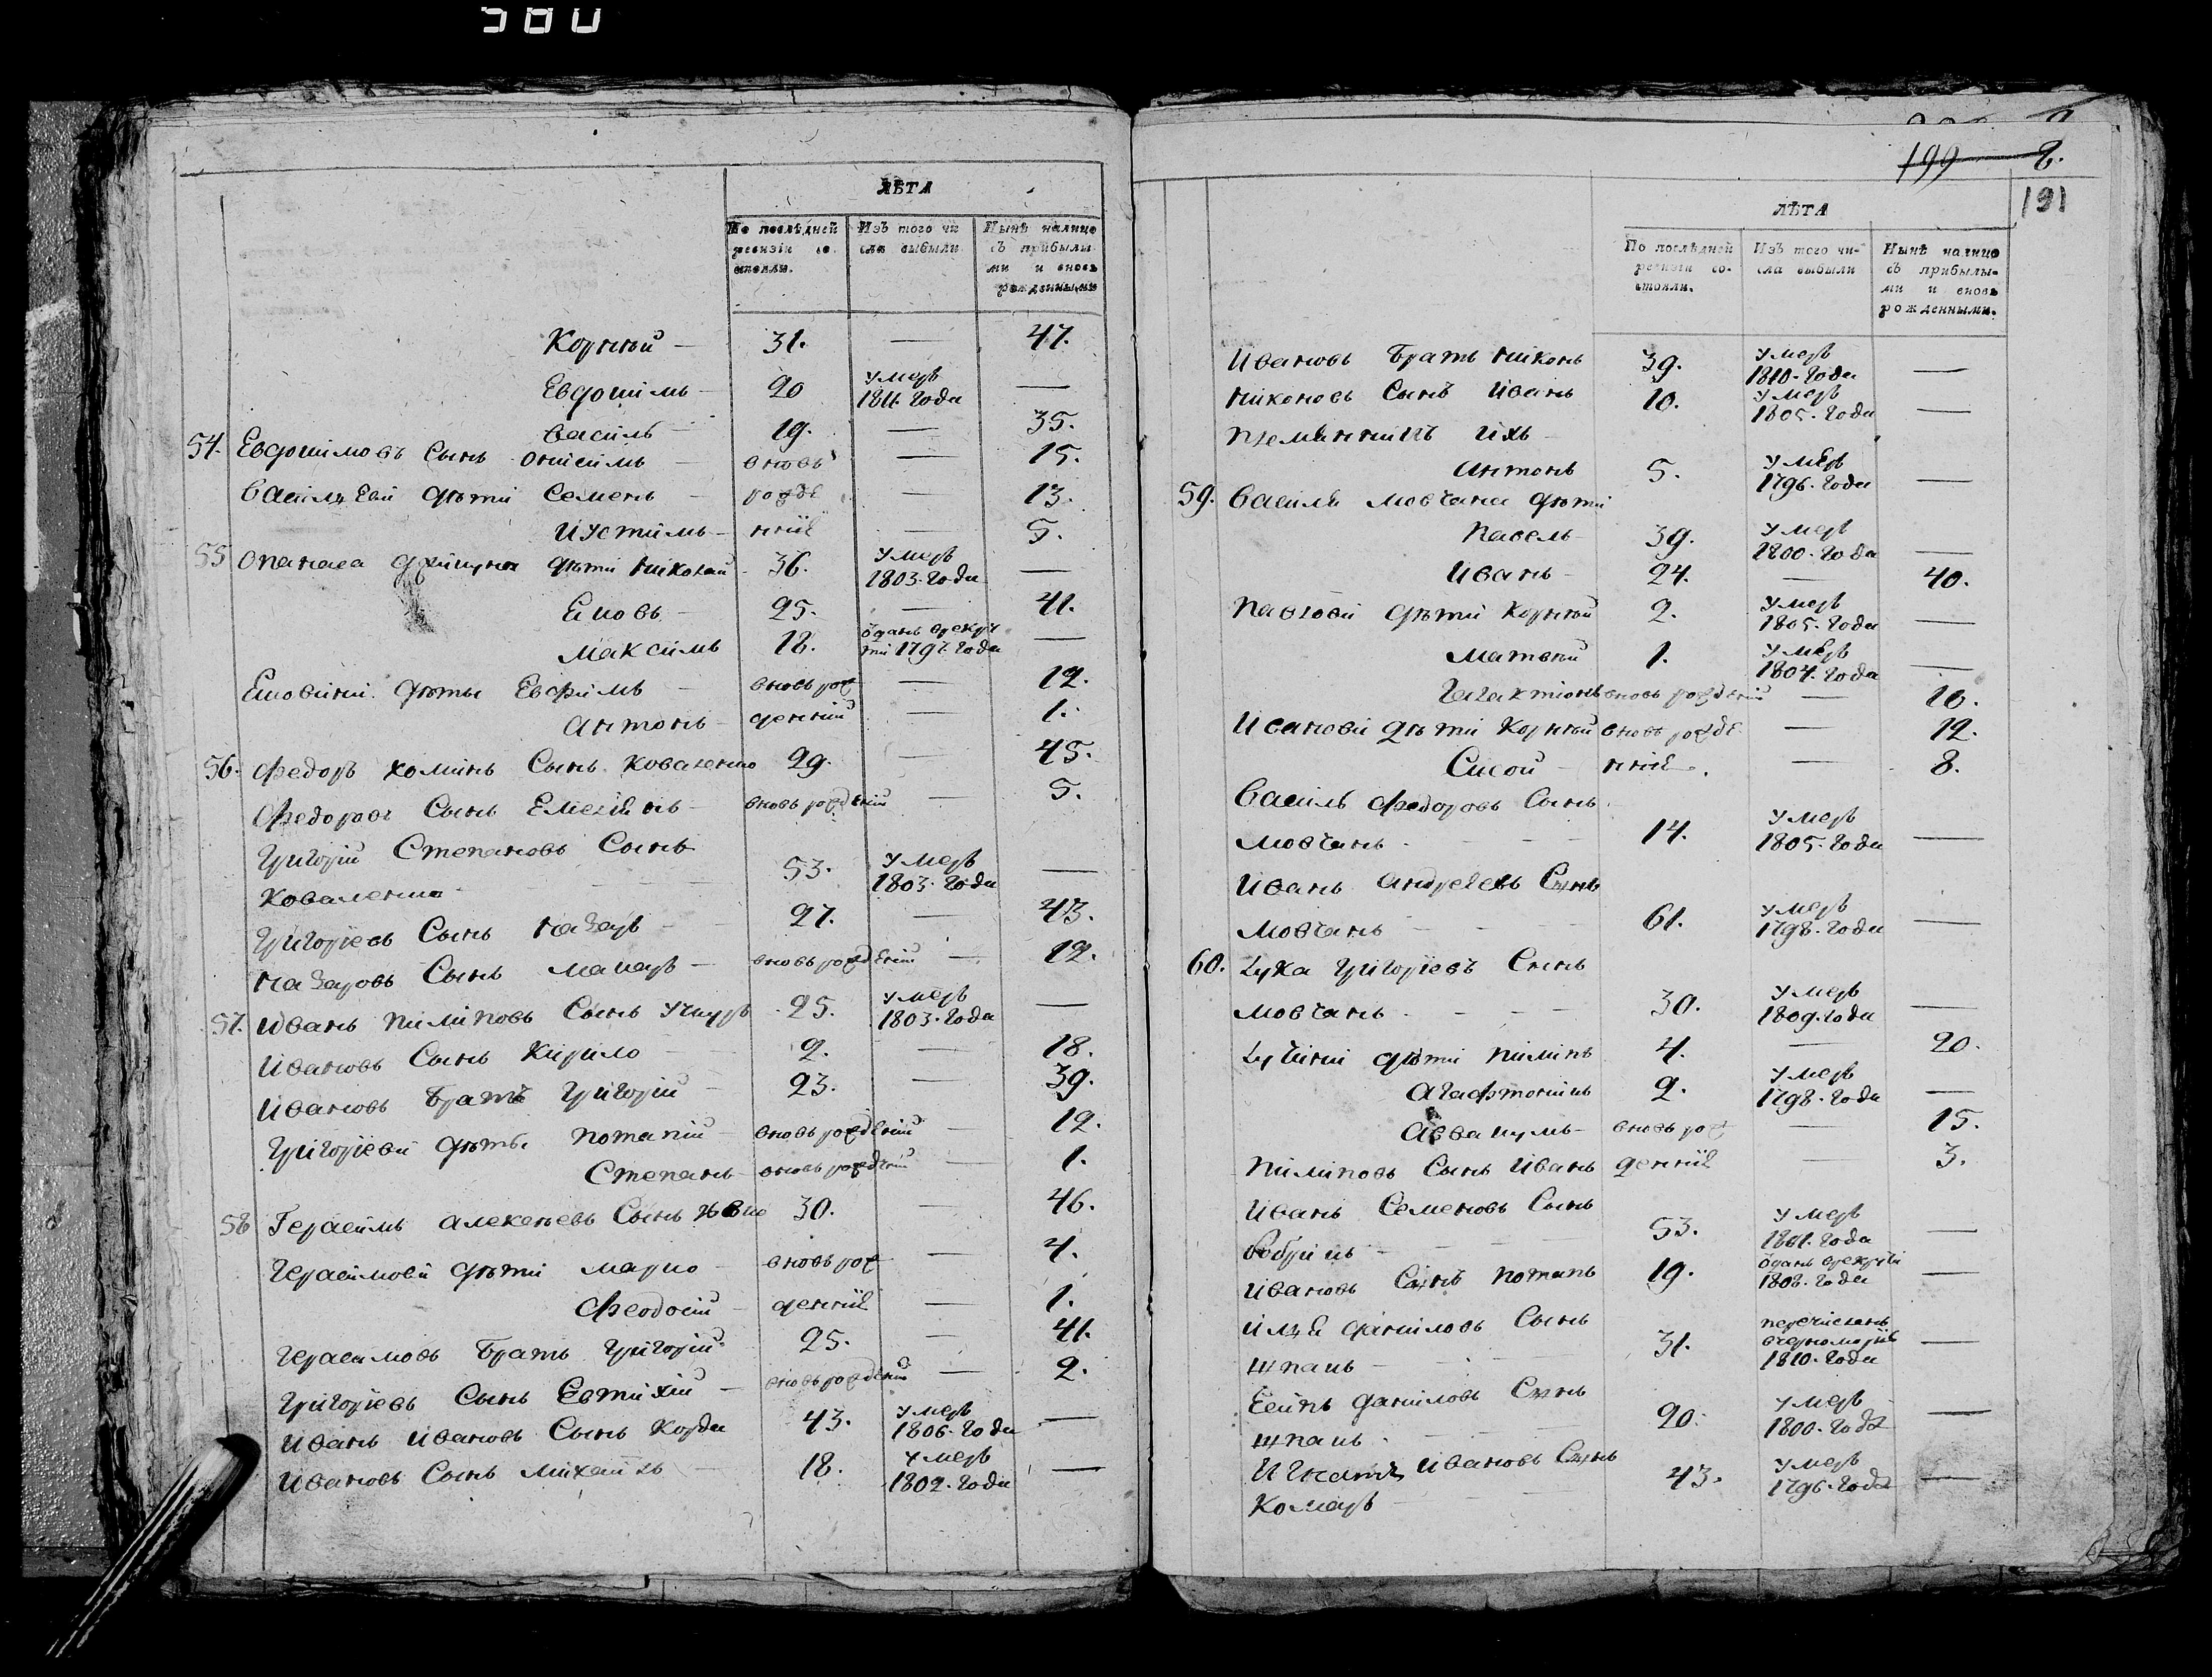 580
ЛѢТА
По послѣдней ревизіи состояли.
Изъ того числа выбыли
Нынѣ налицо съ прибылыми и вновь рожденными
Корнѣй — 31. — 47.
Евдокимъ — 20 умеръ 1811. года —
Василь — 19. — 35.
54. Евдокимовъ Сынъ Онисимъ — вновь — 15.
Василіеви дѣти Семенъ — рожде — 13.
Иустимъ — нніе — 5.
55 Опанаса дѣти Николай — 36. умеръ 1803. года —
25. — 41.
Максимъ 18. 1797. года —
дѣты Евфимъ — вновь рож — 12.
Антонъ — денній — 1.
56. Федоръ Хоминъ Сынъ Коваленко 29. — 45.
Федоровъ Сынъ Емеліянъ — вновь рожденій — 5.
Григорій Степановъ Сынъ
Коваленко — 53. умеръ 1803. года —
Григоріевъ Сынъ Назаръ — 27. — 43.
Назаровъ Сынъ Макаръ — вновь рожденій — 12.
57. Иванъ Пилиповъ Сынъ 25. умеръ 1803. года —
Ивановъ Сынъ Кирило — 2. — 18.
Ивановъ Братъ Григорій — 23. — 39.
Григоріеви дѣты Потапій вновь рожденій — 12.
Степанъ — вновь рожденій — 1.
58 Герасимъ Алексѣевъ Сынъ 30. — 46.
Герасимови дѣти Марко — вновь рож — 4.
Феодосій — денніе — 1.
Герасимовъ Братъ Григорій 25. — 41.
Григоріевъ Сынъ Евтихій — вновь рожденій — 2.
Иванъ Ивановъ Сынъ Корда 43. умеръ 1806. года —
Ивановъ Сынъ Михайло — 18. умеръ 1802. года —
199
191
ЛѢТА
По послѣдней ревизіи состояли.
Изъ того числа выбыли
Нынѣ налицо съ прибылыми и вновь рожденными.
Ивановъ Братъ Никонъ 39. умеръ 1810. года —
Никоновъ Сынъ Иванъ 10. умеръ 1805. года —
Племянникъ ихъ —
Антонъ 5. умеръ 1796. года —
59. Василя Мовчана дѣти
Павелъ — 39. умеръ 1800. года —
Иванъ — 24. — 40.
Павлови дѣти Корнѣй 2. умеръ 1805. года —
Матвѣй 1. умеръ 1804. года —
Галактіонъ вновь рожденій — 10.
Иванови дѣти Корнѣй вновь рожде — 12.
Сисой — нніе — 8.
Василь Федоровъ Сынъ
Мовчанъ — 14. умеръ 1805. года —
Иванъ Андреевъ Сынъ
Мовчанъ — 61. умеръ 1798. года —
60. Лука Григоріевъ Сынъ
Мовчанъ — 30. умеръ 1809. года —
Лучини дѣти Пилипъ 4. — 20.
2. умеръ 1798. года —
Аввакумъ — вновь рож — 15.
Пилиповъ Сынъ Иванъ денніе — 3.
Иванъ Семеновъ Сынъ
53. умеръ 1801. года —
Ивановъ Сынъ Потапъ 19. 1808. года —
Илія Даниловъ Сынъ
Шпакъ — 31. перечисленъ 1810. года —
Даниловъ Сынъ
Шпакъ — 20. умеръ 1800. года —
Игнатъ Ивановъ Сынъ
Комаръ — 43. умеръ 1796. года —